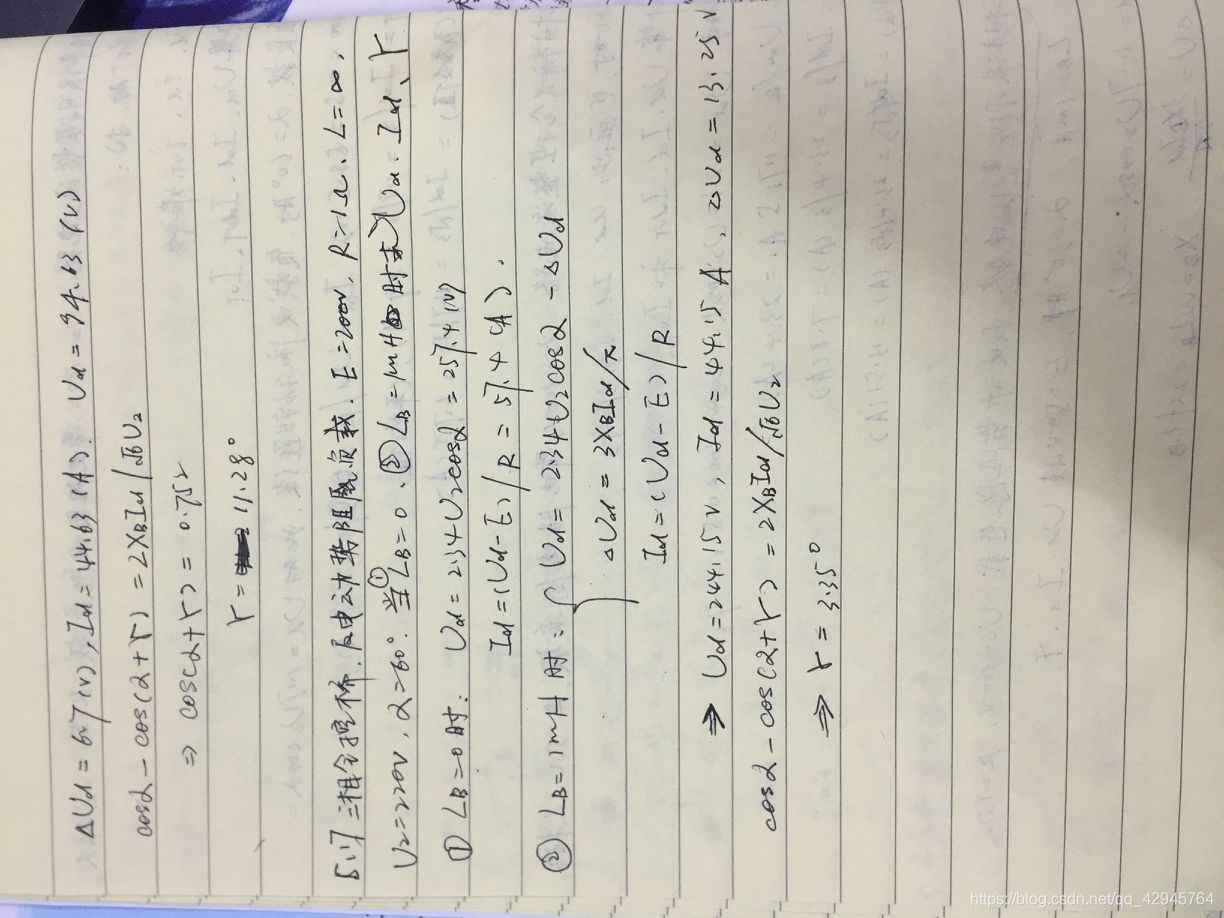 ΔUd = 6.7(V), Id = 44.63(A). Ud = 94.63(V)
cosα − cos(α+γ) = 2XBId/√6U2
⇒ cos(α+γ) = 0.752
γ = 11.28°
[5.17] 三相全控桥. 反电动势阻感负载. E=200V, R=1Ω. L=∞,
U2=220V, α=60°. 当①LB=0. ②LB=1mH时求Ud、Id、γ
① LB=0时: Ud = 2.34U2cosα = 257.4(V)
Id=(Ud-E)/R = 57.4(A).
② LB=1mH时: { Ud = 2.34U2cosα − ΔUd
ΔUd = 3XBId/π
Id=(Ud-E)/R
⇒ Ud=244.15V, Id=44.15A, ΔUd=13.25V
cosα − cos(α+γ) = 2XBId/√6U2
⇒ γ = 3.35°
https://blog.csdn.net/qq_42945764